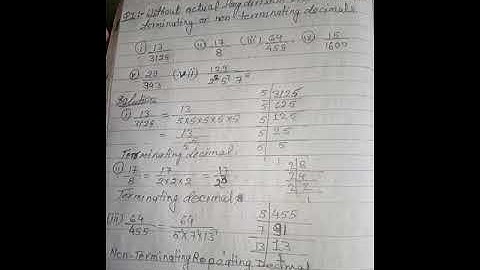 Q1:- Without actual long division
terminating or non-terminating decimals
(i) 13/3125 (ii) 17/8 (iii) 64/455 (iv) 15/1600
(v) 29/343 (vi)
Solution
(i) 13/3125 = 13/5×5×5×5×5
5|3125
5|625
5|125
5|25
5|5
1
Terminating decimal.
(ii) 17/8 = 17/2×2×2 = 17/2³
2|8
2|4
2|2
Terminating decimal
(iii) 64/455 = 64/5×7×13
5|455
7|91
13|13
Non-Terminating Repeating Decimal